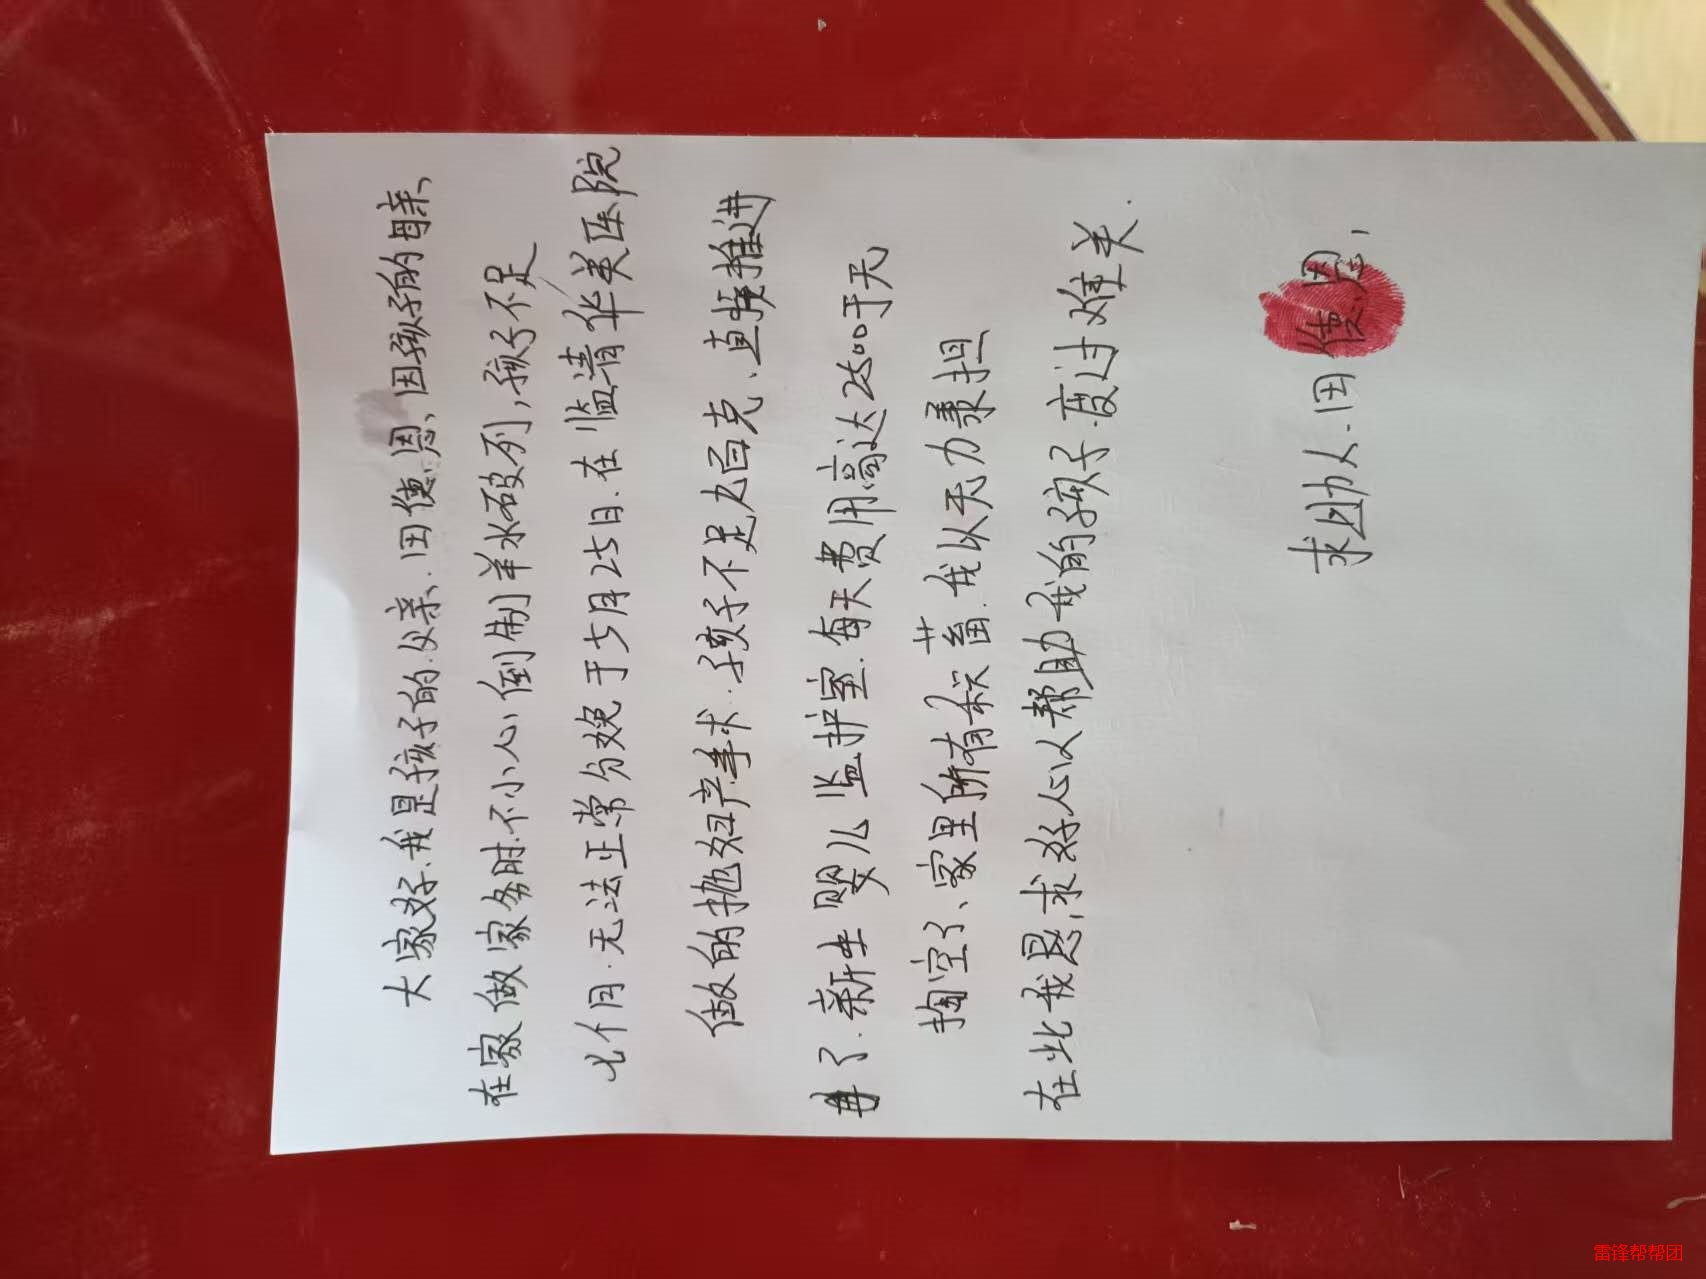 大家好.我是孩子的.父亲.田德恩、因孩子的母亲、
在家做家务时.不小心倒制羊水破列,孩子不足
七个月.无法正常分娩于5月25日.在临清华美医院
做的抛妇产手术.孩子不足九百克、直接推进
了.新生婴儿监护室.每天费用高达2500于天
掏空了、家里所有积蓄.我以无力承担
在此我恳求好心人帮助我的孩子.度过难关.
求助人.田德恩,
雷锋帮帮团